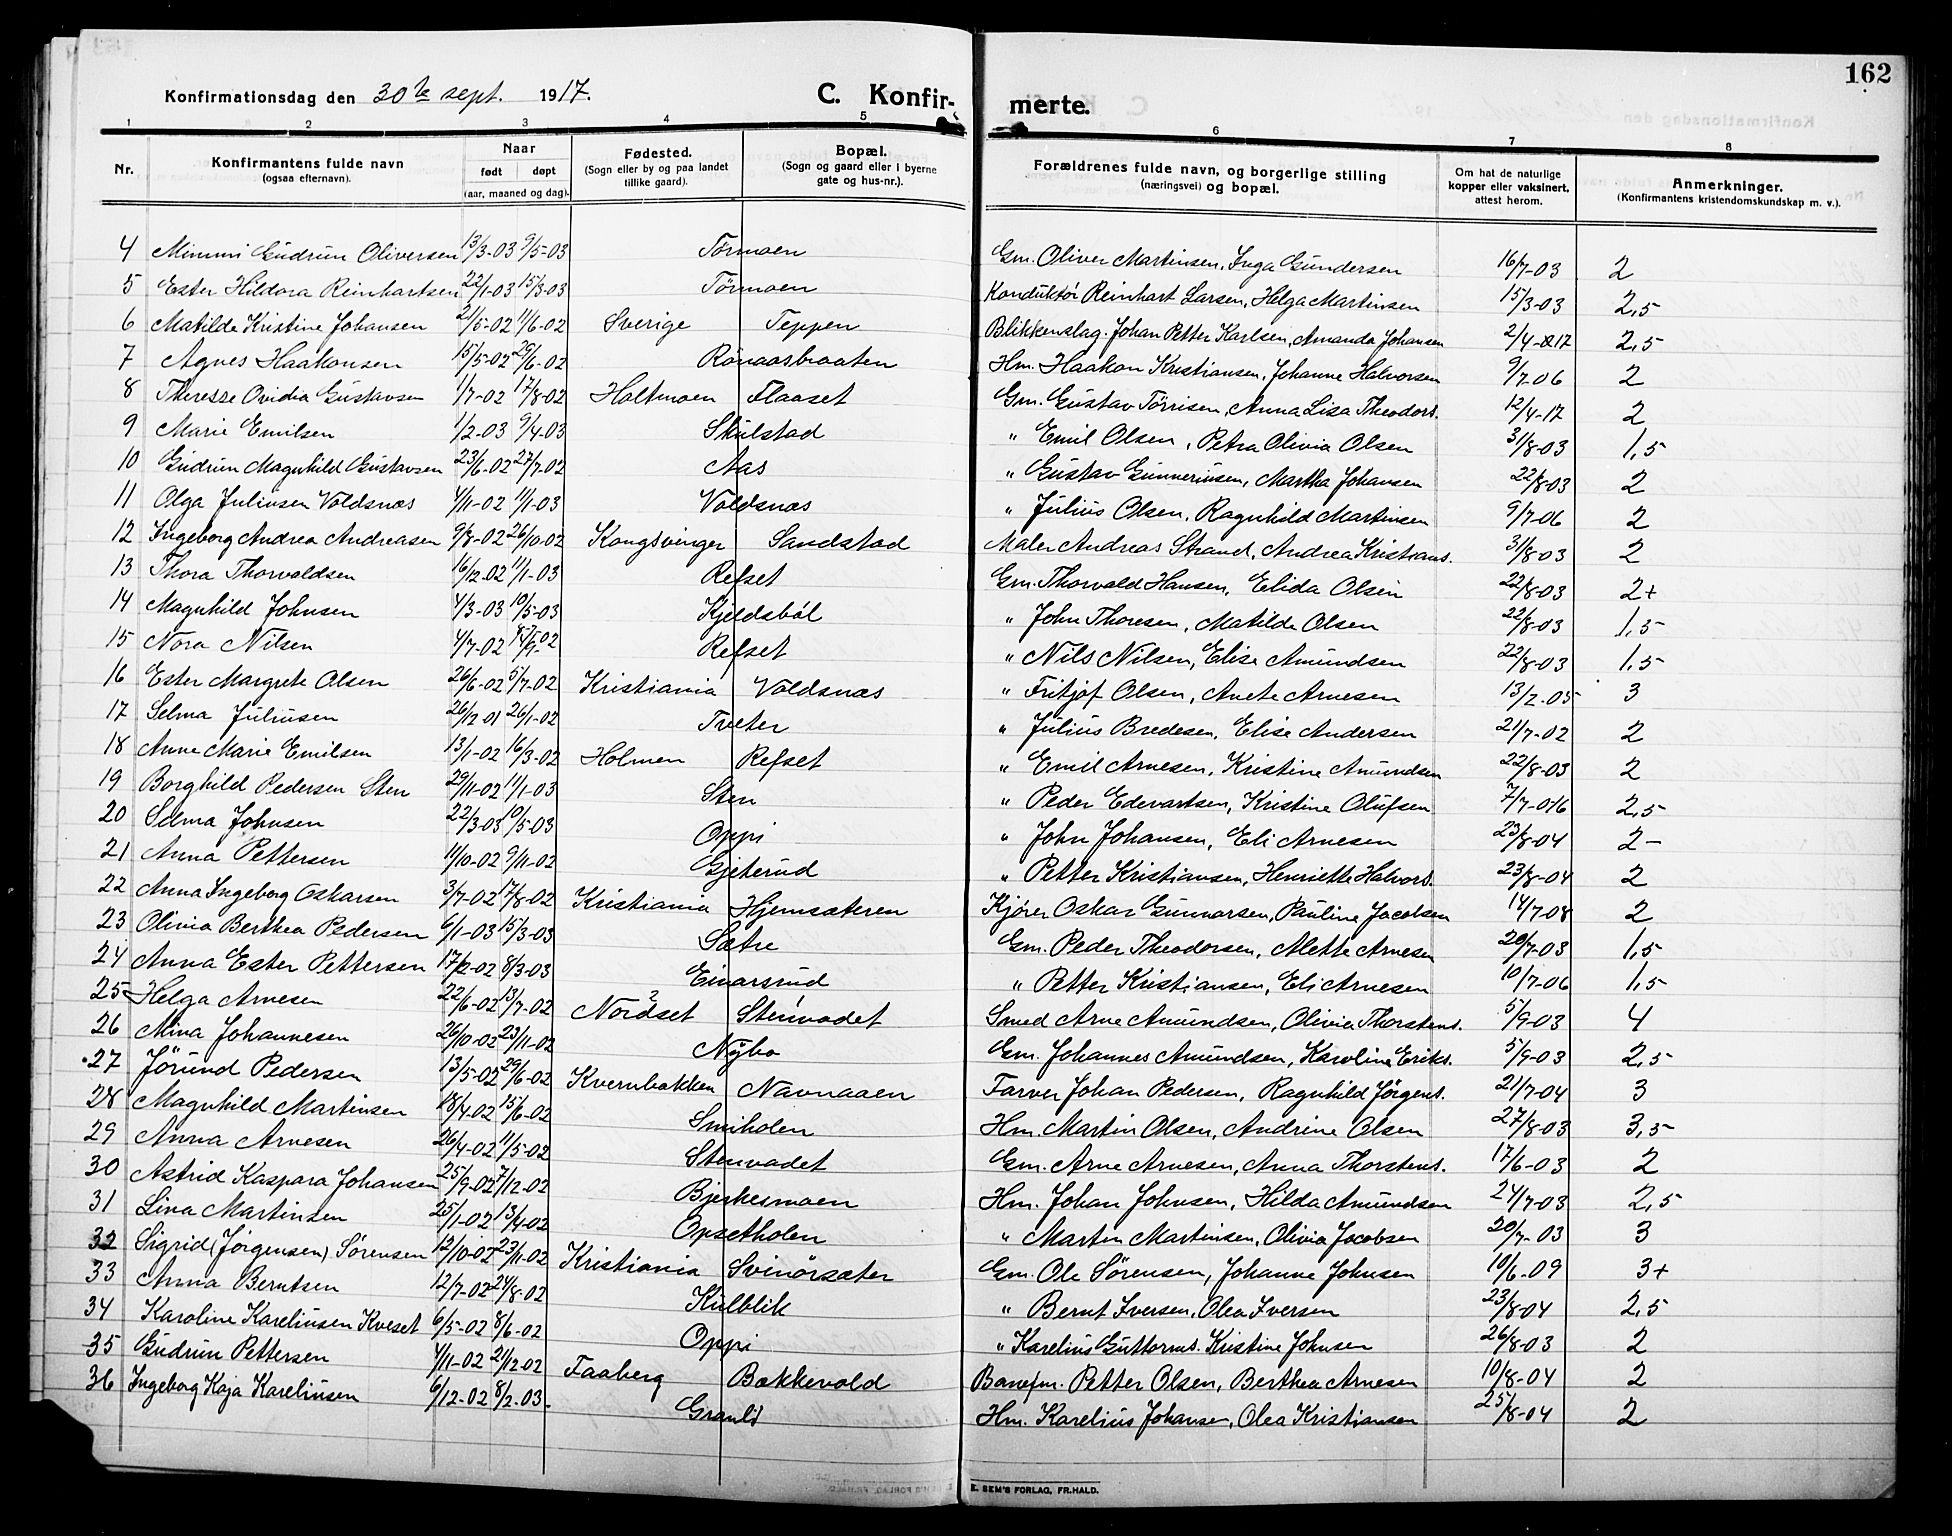 162
Konfirmationsdag den 30te sept. 1917. C. Konfirmerte.
1 2 3 4 5 6 7 8
Nr. Konfirmantens fulde navn (ogsaa efternavn). Naar født døpt (aar, maaned og dag). Fødested. (Sogn eller by og paa landet tillike gaard). Bopæl. (Sogn og gaard eller i byerne gate og hus-nr.). Forældrenes fulde navn, og borgerlige stilling (næringsvei) og bopæl. Om hat de naturlige kopper eller vaksinert, attest herom. Anmerkninger. (Konfirmantens kristendomskundskap m. v.).
4 Mimmi Gudrun Oliversen 13/3-03 9/5-03 Törmoen Gm. Oliver Martinsen, Inga Gundersen 16/7-03 2
5 Ester Hildora Reinhartsen 22/1-03 15/3-03 Törmoen Konduktör Reinhart Larsen, Helga Martinsen 15/3-03 2,5
6 Matilde Kristine Johansen 21/5-02 11/6-02 Sverige Teppen Blikkenslag. Johan Petter Karlsen, Amanda Johansen 2/4-17 2,5
7 Agnes Haakonsen 15/5-02 29/6-02 Rönaasbraaten Hm. Haakon Kristiansen, Johanne Halvorsen 9/7-06 2
8 Therese Ovidia Gustavsen 1/7-02 17/8-02 Holtmoen Flaaset Gm. Gustav Törrisen, Anna Lisa Theodors. 12/4-17 2
9 Marie Emilsen 1/2-03 9/4-03 Skulstad " Emil Olsen, Petra Olivia Olsen 31/8-03 1,5
10 Gudrun Magnhild Gustavsen 23/6-02 27/7-02 Aas " Gustav Gunneriusen, Martha Johansen 22/8-03 2
11 Olga Juliusen Voldsnæs 4/11-02 11/1-03 Voldsnæs " Julius Olsen, Ragnhild Martinsen 9/7-06 2
12 Ingeborg Andrea Andreasen 9/8-02 26/10-02 Kongsvinger Sandstad Maler Andreas Strand, Andrea Kristians. 31/8-03 2
13 Thora Thorvaldsen 16/12-02 11/1-03 Refset Gm. Thorvald Hansen, Elida Olsen 22/8-03 2+
14 Magnhild Johnsen 4/3-03 10/5-03 Kjeldsböl " John Thoresen, Matilde Olsen 22/8-03 1,5
15 Nora Nilsen 4/7-02 Refset " Nils Nilsen, Elise Amundsen 22/8-03 1,5
16 Ester Margrete Olsen 26/6-02 5/7-02 Kristiania Voldsnæs " Fritjof Olsen, Anete Arnesen 13/2-05 3
17 Selma Juliusen 26/12-01 26/1-02 Tveter " Julius Bredesen, Elise Andersen 21/7-02 2
18 Anne Marie Emilsen 13/1-02 16/3-02 Holmen Refset " Emil Arnesen, Kristine Amundsen 22/8-03 2
19 Borghild Pedersen Sten 29/11-02 11/1-03 Sten " Peder Edevartsen, Kristine Olufsen 7/7-06 2,5
20 Selma Johnsen 22/3-03 10/5-03 Oppi " John Johansen, Eli Arnesen 23/8-04 2-
21 Anna Pettersen 11/10-02 9/11-02 Gjeterud " Petter Kristiansen, Henriette Halvors. 23/8-04 2
22 Anna Ingeborg Oskarsen 3/7-02 17/8-02 Kristiania Hjemsæteren Kjører Oskar Gunnarsen, Pauline Jacobsen 14/7-08 2
23 Olivia Berthea Pedersen 6/1-03 15/3-03 Sætre Gm. Peder Theodorsen, Alette Arnesen 20/7-03 1,5
24 Anna Ester Pettersen 17/12-02 8/3-03 Einarsrud " Petter Kristiansen, Eli Arnesen 10/7-06 1,5
25 Helga Arnesen 22/6-02 13/7-02 Nordset ? Stenvadet Smed Arne Amundsen, Olivia Thorstens. 5/9-03 4
26 Mina Johannesen 26/10-02 23/11-02 Nybo Gm. Johannes Amundsen, Karoline Eriks. 5/9-03 2,5
27 Jörund Pedersen 13/5-02 29/6-02 Kvernbakken Navnaaen Farver Johan Pedersen, Ragnhild Jörgens. 21/7-04 3
28 Magnhild Martinsen 18/4-02 15/6-02 Smiholen Hm. Martin Olsen, Andrine Olsen 27/8-03 3,5
29 Anna Arnesen 26/4-02 11/5-02 Stenvadet Gm. Arne Arnesen, Anna Thorstens. 17/6-03 2
30 Astrid Kaspara Johansen 25/9-02 7/12-02 Bjerkesmoen Hm. Johan Johnsen, Hilda Amundsen 24/7-03 2,5
31 Lina Martinsen 25/1-02 13/4-02 Opsetholen " Martin Martinsen, Olivia Jacobsen 20/7-03 3
32 Sigrid (Jörgensen) Sörensen 12/10-02 23/11-02 Kristiania Svinörsæter Gm. Ole Sörensen, Johanne Johnsen 10/6-09 3+
33 Anna Berntsen 12/7-02 24/8-02 Kulblik " Bernt Iversen, Olea Iversen 23/8-04 2,5
34 Karoline Kareliusen Kveset 6/5-02 8/6-02 Oppi " Karelius Guttorms. Kristine Johnsen 26/8-03 2
35 Gudrun Pettersen 4/11-02 21/12-02 Faaberg Bakkevold Banefm. Petter Olsen, Berthea Arnesen 10/8-04 2
36 Ingeborg Kaja Kareliusen 6/12-02 8/2-03. Granli Hm. Karelius Johansen, Olea Kristiansen 25/8-04 2
E. SEM'S FORLAG, FR.HALD.